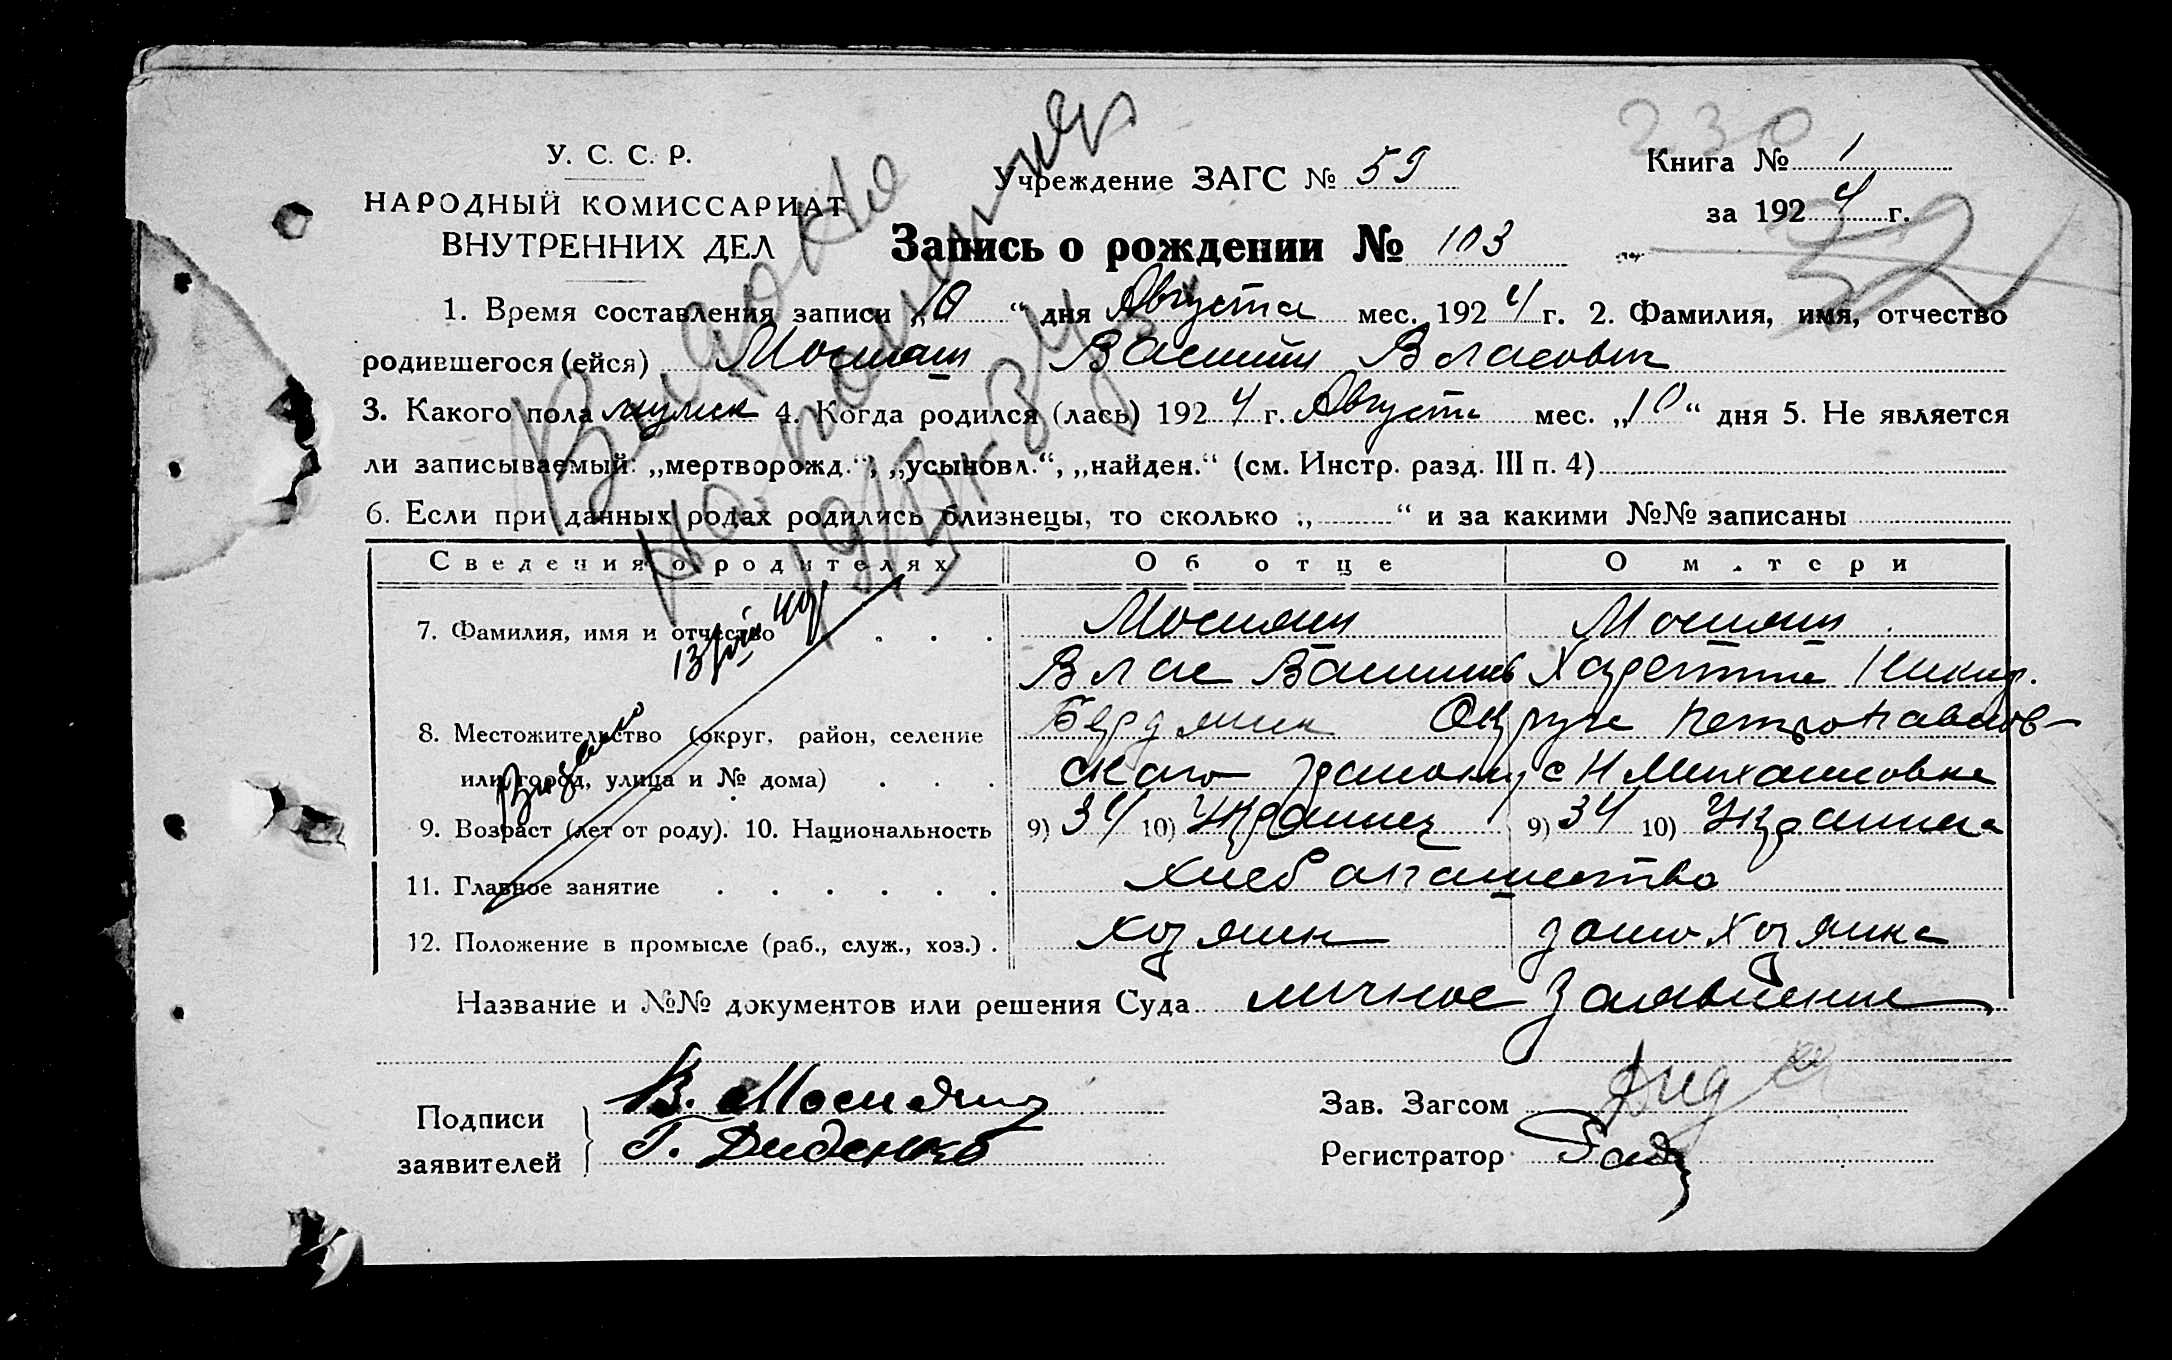 230
У. С. С. Р.
НАРОДНЫЙ КОМИССАРИАТ
ВНУТРЕННИХ ДЕЛ
Учреждение ЗАГС № 59
Книга № 1
за 1924 г.
32
Запись о рождении № 103
1. Время составления записи „10“ дня Августа мес. 1924 г. 2. Фамилия, имя, отчество
родившегося (ейся) Мосияш Василий Власович
3. Какого пола мужск 4. Когда родился (лась) 1924 г. Августа мес. „10“ дня 5. Не является
ли записываемый: „мертворожд.“, „усыновл.“, „найден.“ (см. Инстр. разд. III п. 4)
6. Если при данных родах родились близнецы, то сколько „ “ и за какими №№ записаны
Сведения о родителях Об отце О матери
7. Фамилия, имя и отчество . . . Мосияш Мосияш
Влас Васильев Харетина Никиф.
8. Местожительство (округ, район, селение Бердянск Округа Петропавлов-
или город, улица и № дома) . . . ского району с Н Михайловка
9. Возраст (лет от роду). 10. Национальность 9) 34 10) Украинец 9) 34 10) Украинка
11. Главное занятие . . . . . . Хлебопашество
12. Положение в промысле (раб., служ., хоз.) . хозяин домохозяйка
Название и №№ документов или решения Суда личное Заявление
Подписи
заявителей
В. Мосияш
Г. Диденко
Зав. Загсом
Регистратор